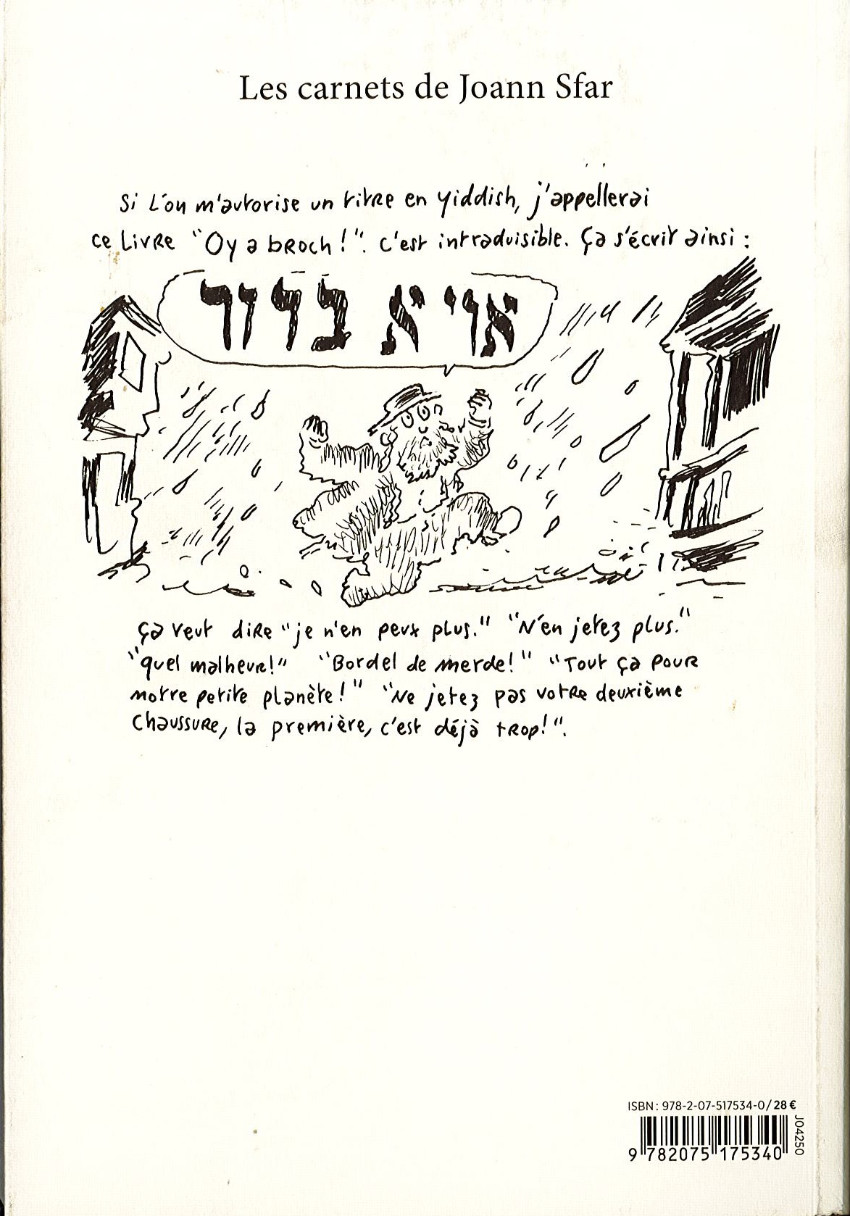 Les carnets de Joann Sfar
Si l'on m'autorise un titre en Yiddish, j'appellerai
ce livre "Oy a broch!". C'est intraduisible. Ça s'écrit ainsi :
אוי א ברוך
ça veut dire "je n'en peux plus." "N'en jetez plus."
"quel malheur!" "Bordel de merde!" "Tout ça pour
notre petite planète!" "Ne jetez pas votre deuxième
chaussure, la première, c'est déjà trop!".
ISBN : 978-2-07-517534-0/28 €
J04250
9 782075 175340